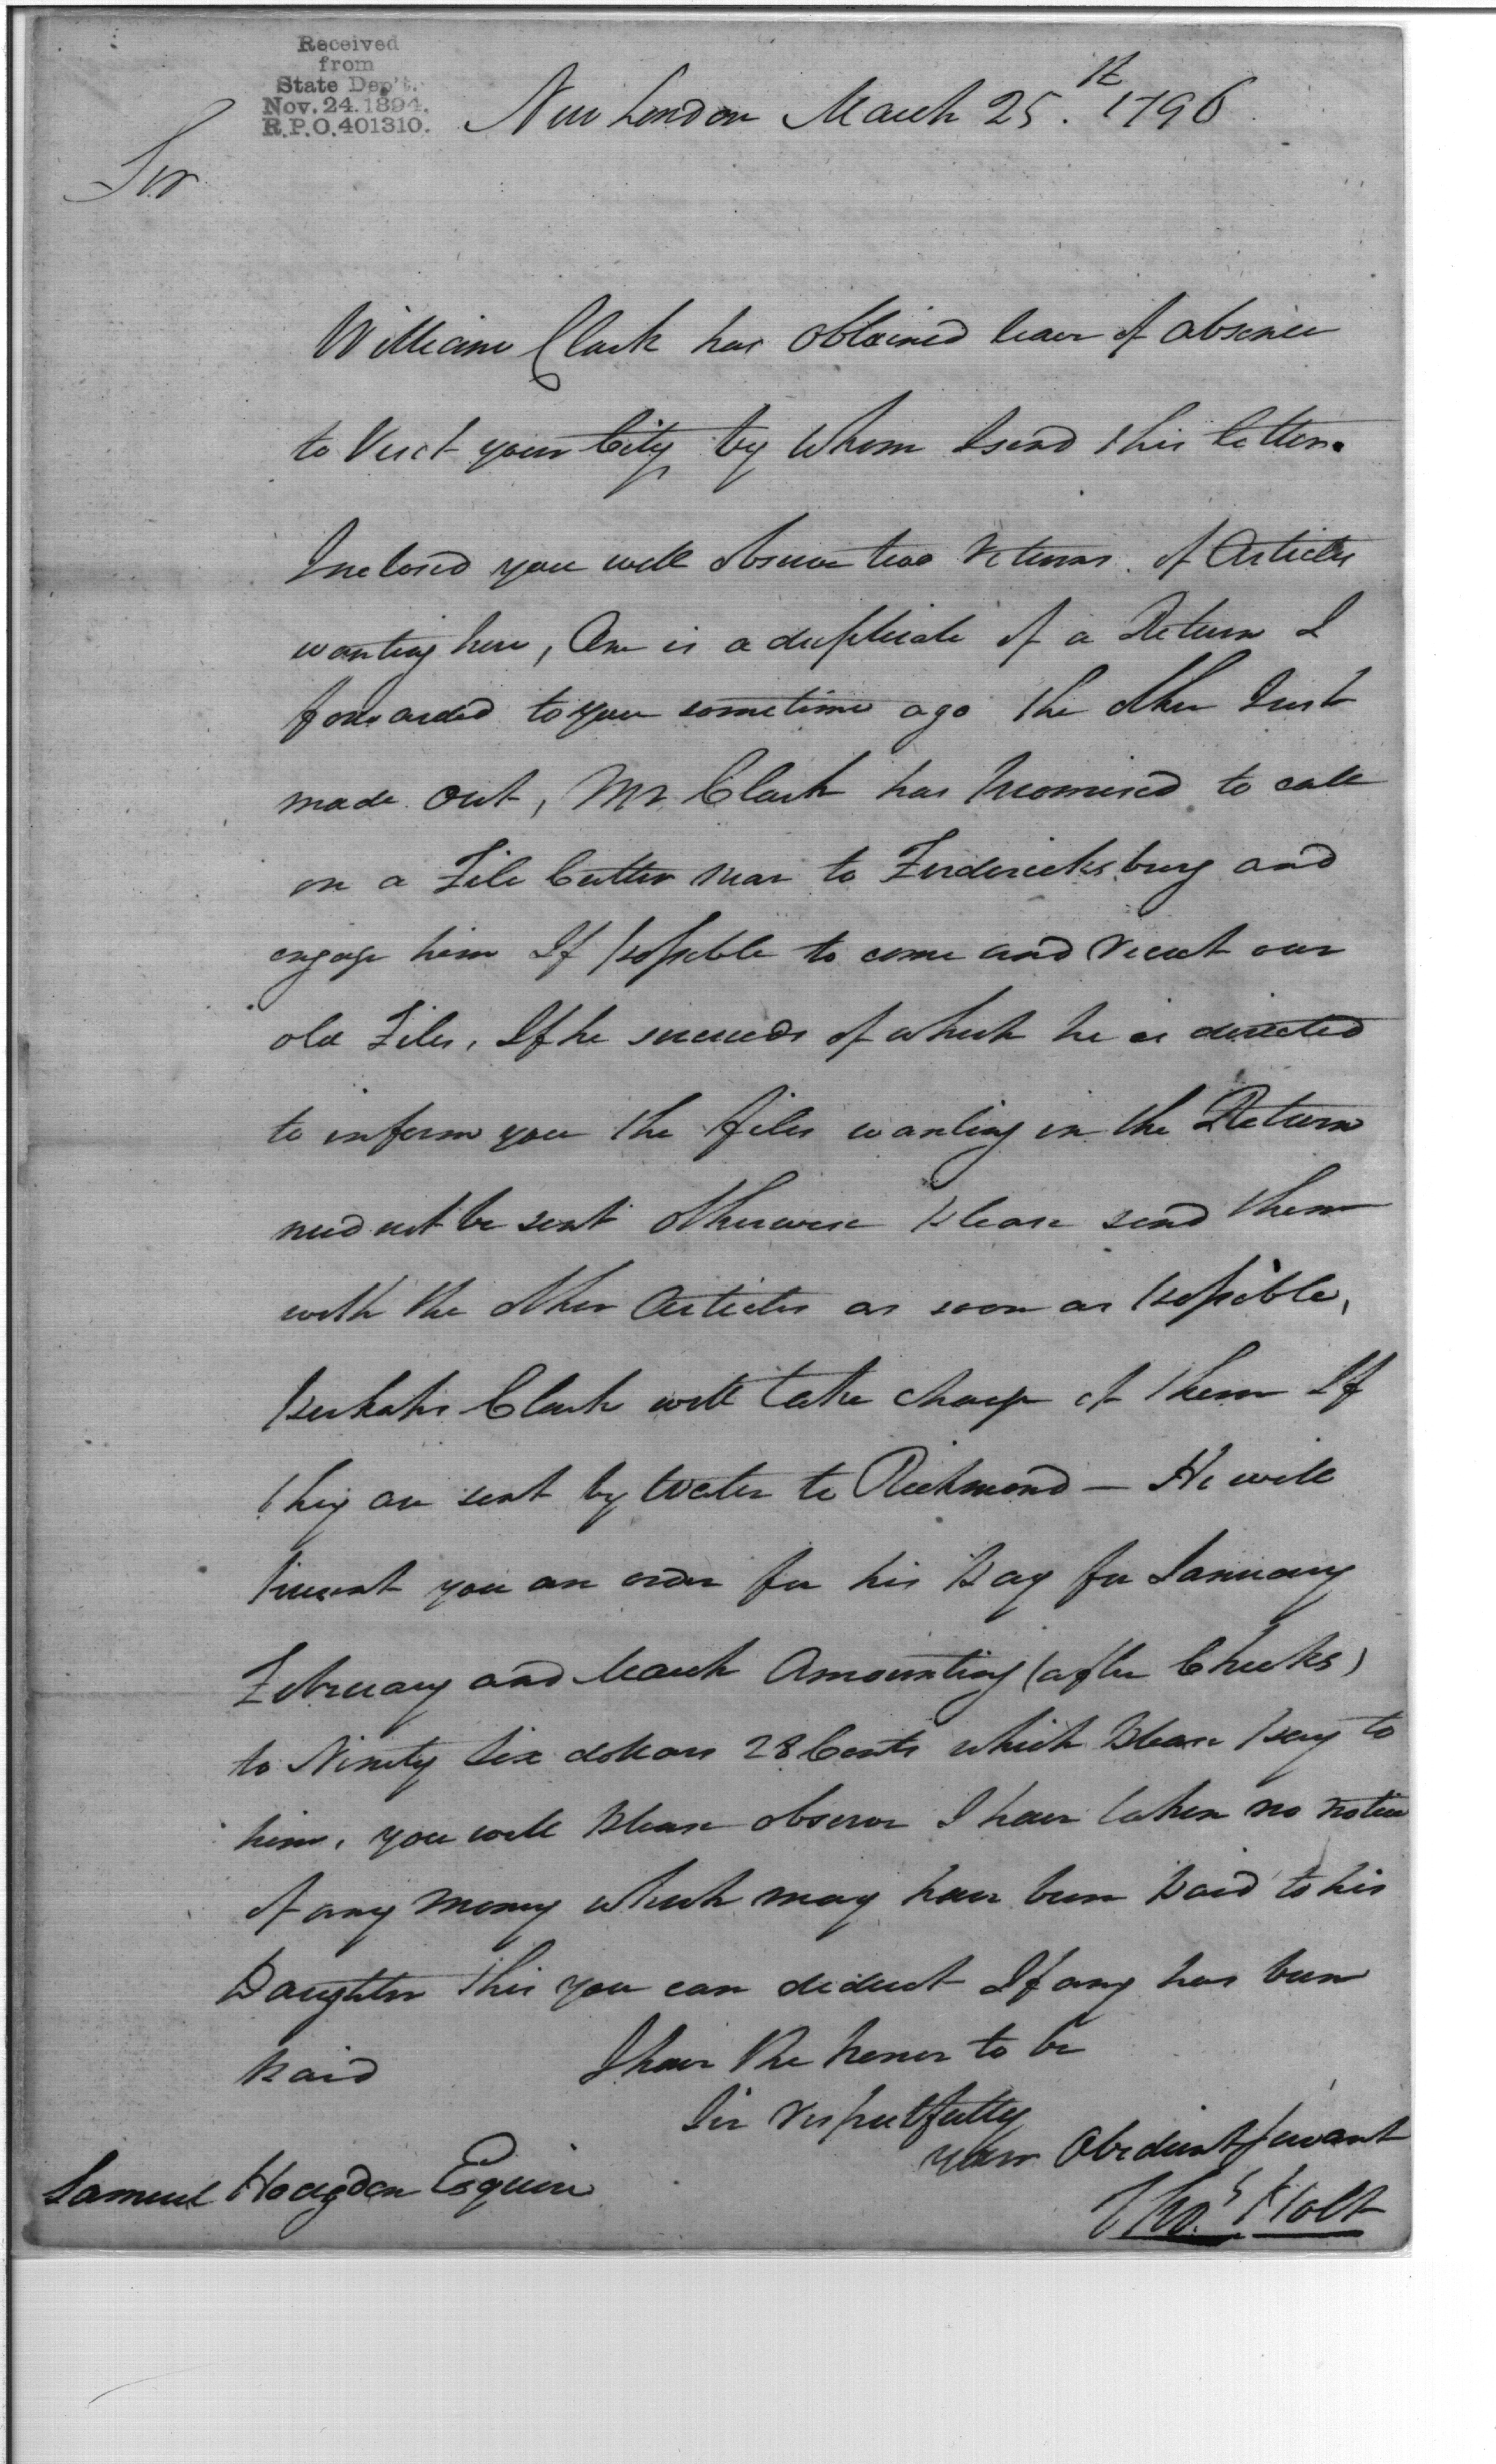 Received
from
State Dep't.
Nov. 24. 1894.
R.P.O. 401310.
New London March 25.th 1796
Sir
William Clark has obtained leave of absence
to Visit your City by whom I send this letter.
Inclosed you will observe two Returns of Articles
wanting here, One is a duplicate of a Return I
forwarded to you sometime ago the other Just
made out, Mr. Clark has promised to call
on a File Cutter near to Fredericksburg and
engage him If possible to come and recut our
old Files, If he succeeds of which he is directed
to inform you the files wanting in the Return
need not be sent otherwise please send them
with the other Articles as soon as possible,
perhaps Clark will take charge of them If
they are sent by Water to Richmond – He will
present you an order for his pay for January
February and March Amounting (after Checks)
to Ninety Six dollars 28 Cents which please pay to
him, you will please observe I have taken no notice
of any money which may have been paid to his
Daughter this you can deduct If any has been
paid I have the honor to be
Sir respectfully
your Obedient servant
Thos. Holt
Samuel Hodgdon Esquire